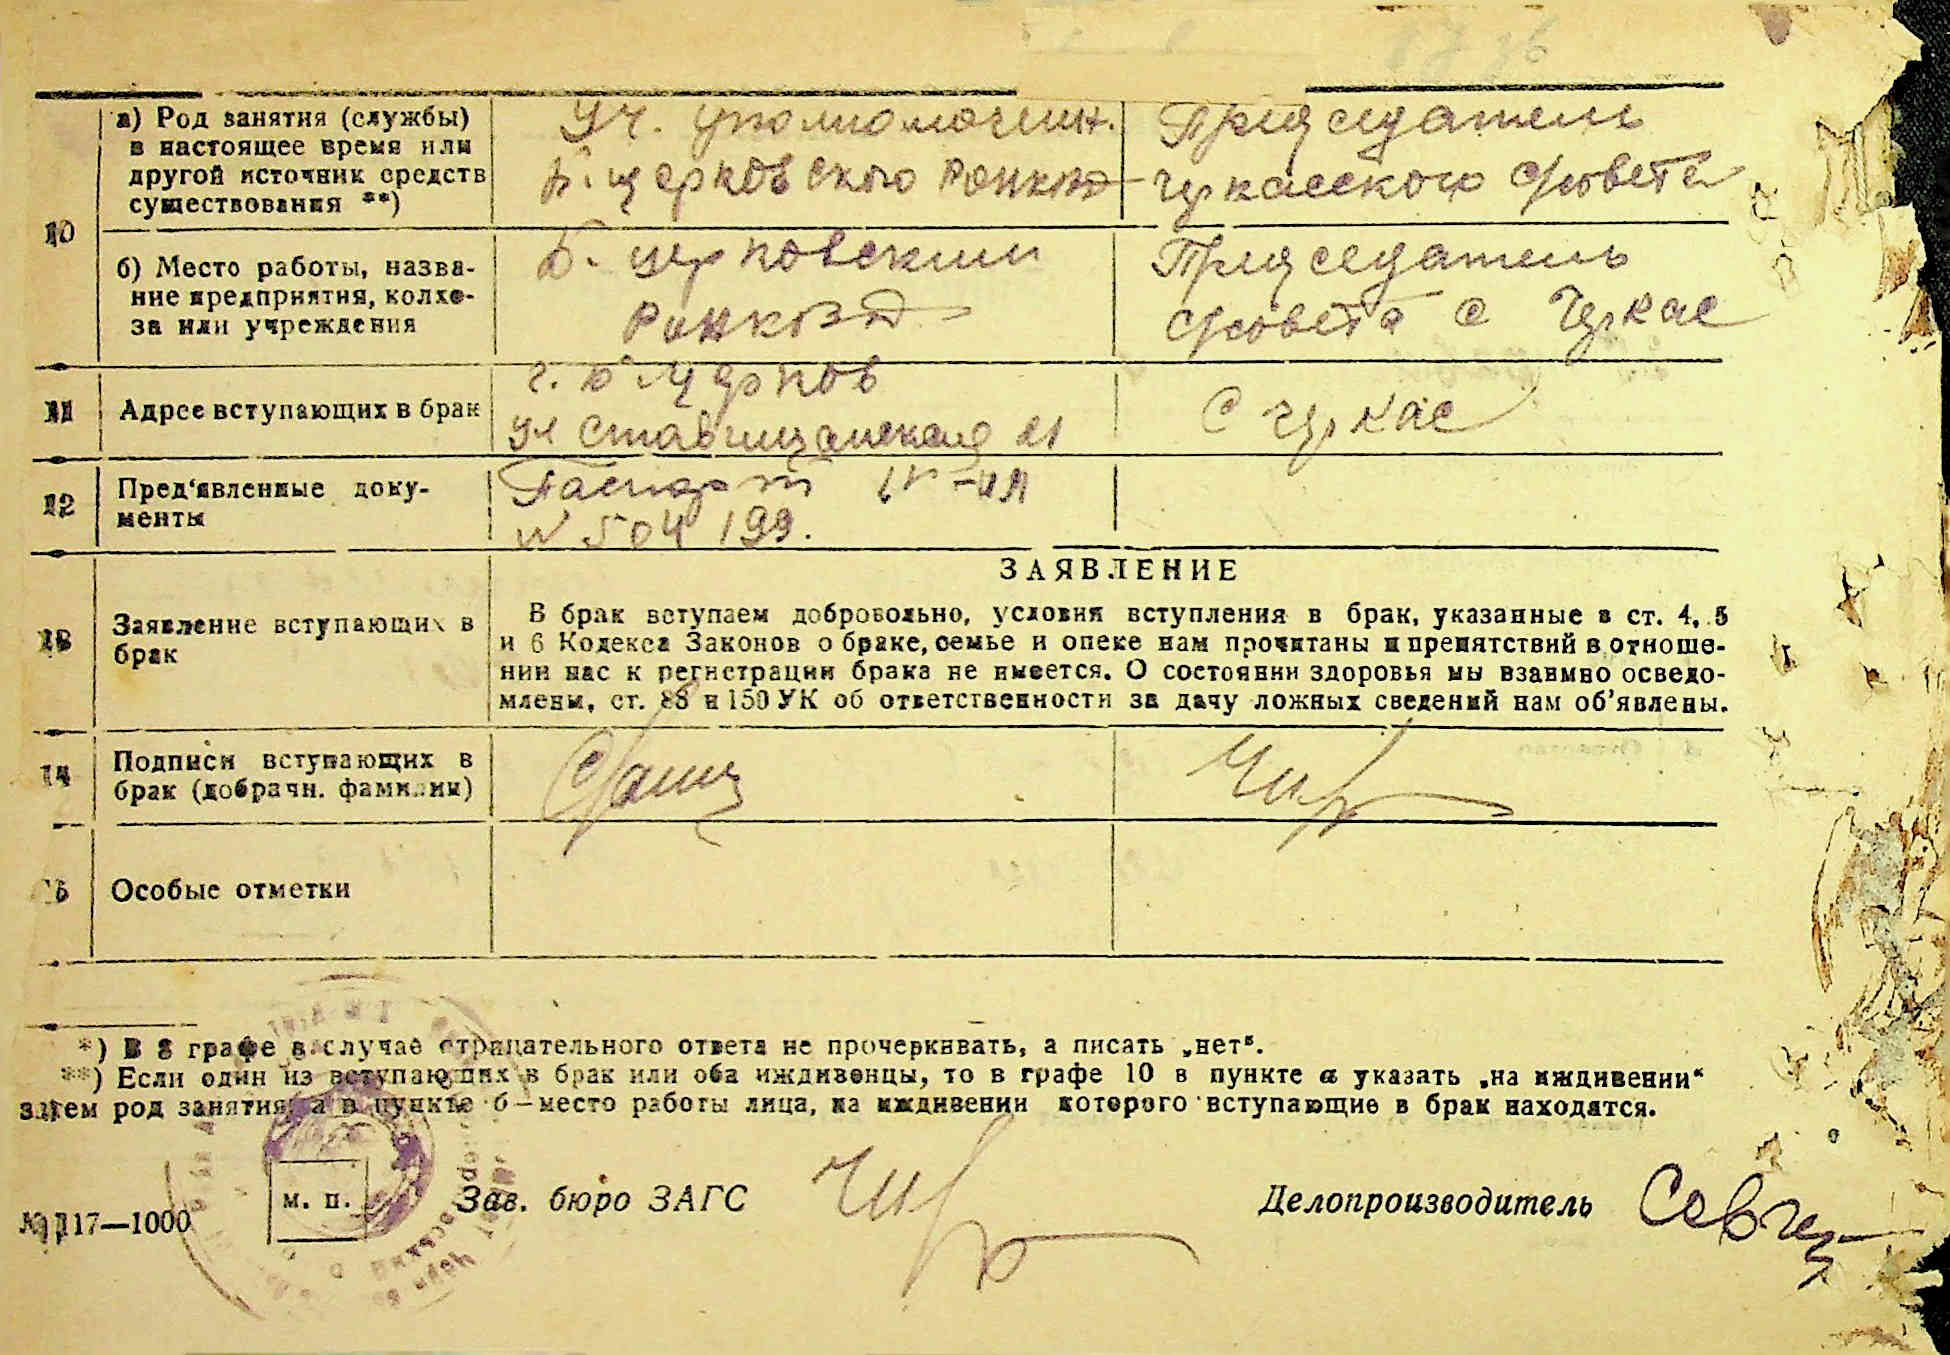 10
а) Род занятия (службы)
в настоящее время или
другой источник средств
существования **)
Уч. уполномочен.
Б. церковского
Председатель
Чупкасского с/совета
б) Место работы, назва-
ние предприятия, колхо-
за или учреждения
Б. церковский
Председатель
с/совета с
11
Адрес вступающих в брак
г. Б Церков
ул
21
С
12
Пред'явленные доку-
менты
Паспорт
N 504199.
ЗАЯВЛЕНИЕ
13
Заявление вступающих в
брак
В брак вступаем добровольно, условия вступления в брак, указанные в ст. 4, 5
и 6 Кодекса Законов о браке, семье и опеке нам прочитаны и препятствий в отноше-
нии нас к регистрации брака не имеется. О состоянии здоровья мы взаимно осведо-
млены, ст. 88 и 150 УК об ответственности за дачу ложных сведений нам об'явлены.
14
Подписи вступающих в
брак (добрачн. фамилии)
15
Особые отметки
*) В 8 графе в случае отрицательного ответа не прочеркивать, а писать „нет“.
**) Если один из вступающих в брак или оба иждивенцы, то в графе 10 в пункте а указать „на иждивении“
затем род занятия, а в пункте б—место работы лица, на иждивении которого вступающие в брак находятся.
м. п.
Зав. бюро ЗАГС
Делопроизводитель
117—1000